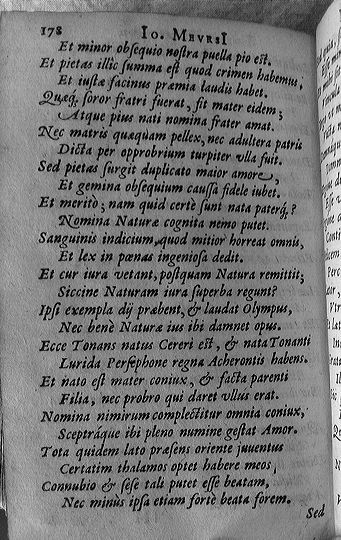 178 IO. MEVRSI
Et minor obsequio nostra puella pio est.
Et pietas illic summa est quod crimen habemus,
Et iustæ facinus præmia laudis habet.
Quæq; soror fratri fuerat, fit mater eidem;
Atque pius nati nomina frater amat.
Nec matris quæquam pellex, nec adultera patris
Dicta per opprobrium turpiter vlla fuit.
Sed pietas surgit duplicato maior amore,
Et gemina obsequium caussa fidele iubet.
Et meritò; nam quid certè sunt nata paterq́;?
Nomina Naturæ cognita nemo putet.
Sanguinis indicium, quod mitior horreat omnis,
Et lex in pœnas ingeniosa dedit.
Et cur iura vetant, postquam Natura remittit;
Siccine Naturam iura superba regunt?
Ipsi exempla dij præbent, & laudat Olympus,
Nec benè Naturæ ius ibi damnet opus.
Ecce Tonans natus Cereri est, & nata Tonanti
Lurida Persephone regna Acherontis habens.
Et nato est mater coniux, & facta parenti
Filia, nec probro qui daret vllus erat.
Nomina nimirum complectitur omnia coniux,
Sceptráque ibi pleno numine gestat Amor.
Tota quidem lato præsens oriente iuuentus
Certatim thalamos optet habere meos,
Connubio & sese tali putet esse beatam,
Nec minùs ipsa etiam fortè beata forem.
Sed